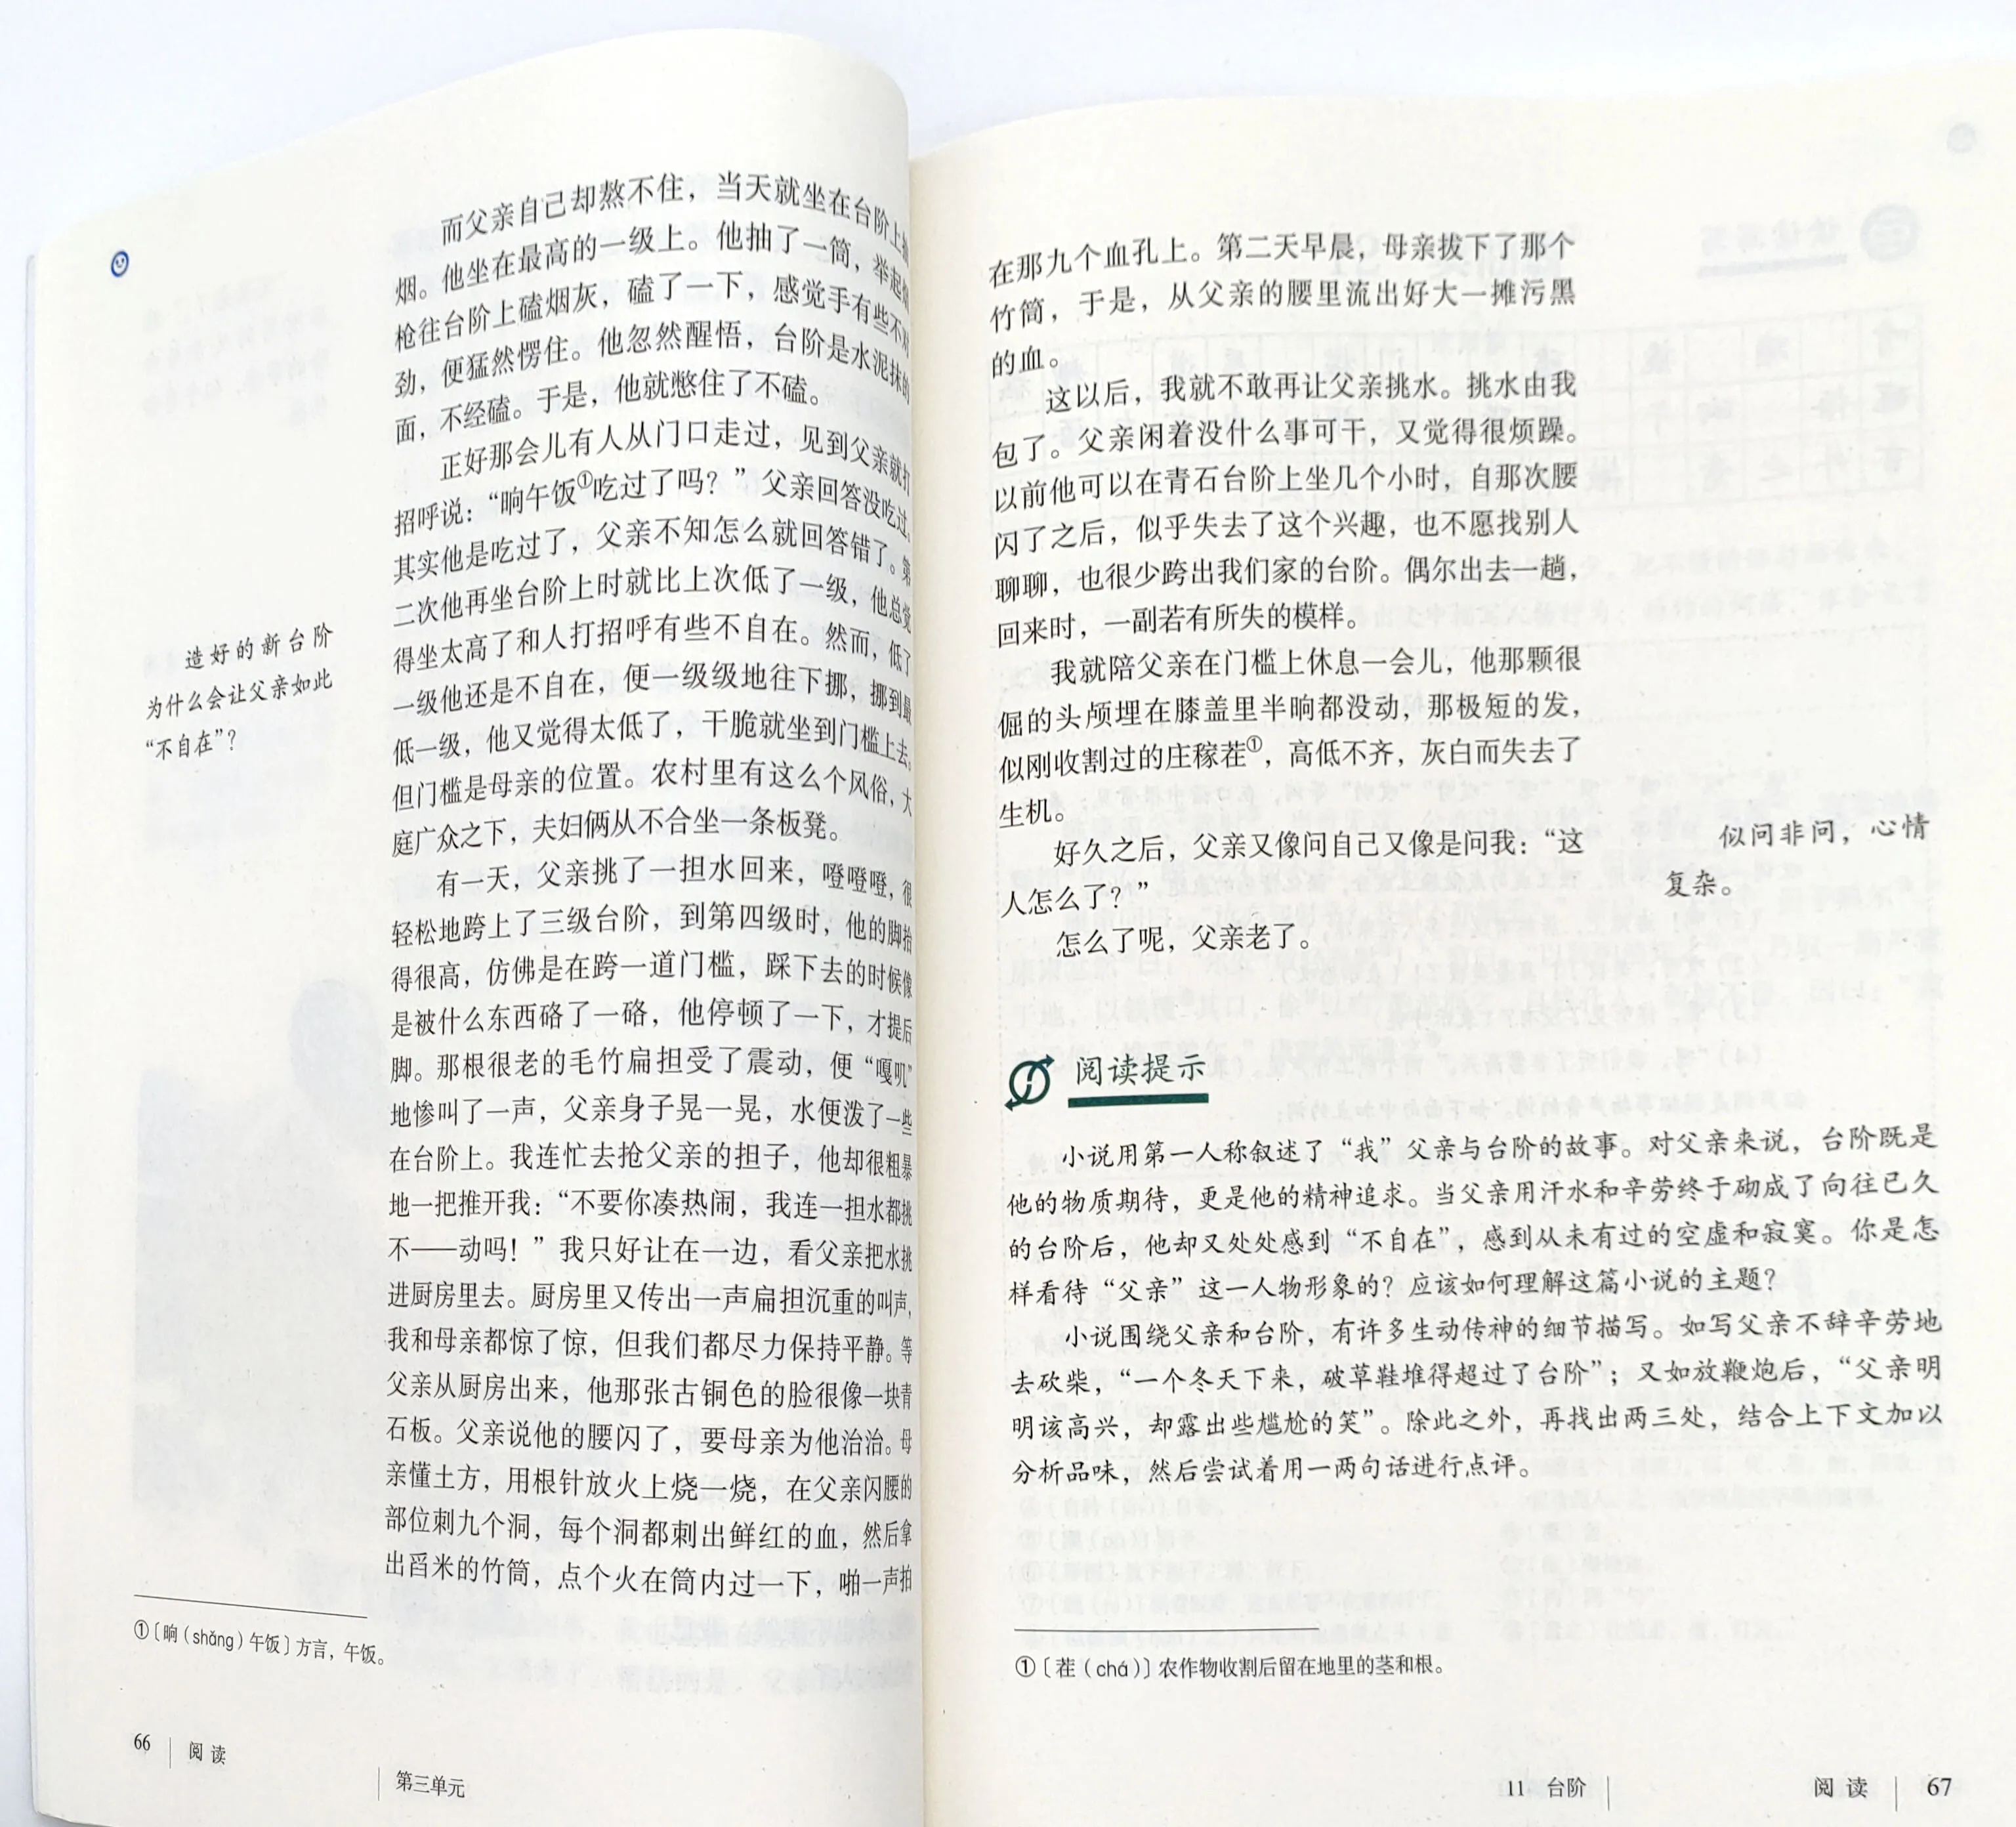 而父亲自己却熬不住，当天就坐在台阶上抽
烟。他坐在最高的一级上。他抽了一筒，举起烟
枪往台阶上磕烟灰，磕了一下，感觉手有些不对
劲，便猛然愣住。他忽然醒悟，台阶是水泥抹的
面，不经磕。于是，他就憋住了不磕。
正好那会儿有人从门口走过，见到父亲就打
招呼说：“晌午饭①吃过了吗？”父亲回答没吃过。
其实他是吃过了，父亲不知怎么就回答错了。第
二次他再坐台阶上时就比上次低了一级，他总觉
得坐太高了和人打招呼有些不自在。然而，低了
一级他还是不自在，便一级级地往下挪，挪到最
低一级，他又觉得太低了，干脆就坐到门槛上去。
但门槛是母亲的位置。农村里有这么个风俗，大
庭广众之下，夫妇俩从不合坐一条板凳。
有一天，父亲挑了一担水回来，噔噔噔，很
轻松地跨上了三级台阶，到第四级时，他的脚抬
得很高，仿佛是在跨一道门槛，踩下去的时候像
是被什么东西硌了一硌，他停顿了一下，才提后
脚。那根很老的毛竹扁担受了震动，便“嘎叽”
地惨叫了一声，父亲身子晃一晃，水便泼了一些
在台阶上。我连忙去抢父亲的担子，他却很粗暴
地一把推开我：“不要你凑热闹，我连一担水都挑
不——动吗！”我只好让在一边，看父亲把水挑
进厨房里去。厨房里又传出一声扁担沉重的叫声，
我和母亲都惊了惊，但我们都尽力保持平静。等
父亲从厨房出来，他那张古铜色的脸很像一块青
石板。父亲说他的腰闪了，要母亲为他治治。母
亲懂土方，用根针放火上烧一烧，在父亲闪腰的
部位刺九个洞，每个洞都刺出鲜红的血，然后拿
出舀米的竹筒，点个火在筒内过一下，啪一声拍
造好的新台阶
为什么会让父亲如此
“不自在”？
①〔晌（shǎng）午饭〕方言，午饭。
66 阅读
第三单元
在那九个血孔上。第二天早晨，母亲拔下了那个
竹筒，于是，从父亲的腰里流出好大一摊污黑
的血。
这以后，我就不敢再让父亲挑水。挑水由我
包了。父亲闲着没什么事可干，又觉得很烦躁。
以前他可以在青石台阶上坐几个小时，自那次腰
闪了之后，似乎失去了这个兴趣，也不愿找别人
聊聊，也很少跨出我们家的台阶。偶尔出去一趟，
回来时，一副若有所失的模样。
我就陪父亲在门槛上休息一会儿，他那颗很
倔的头颅埋在膝盖里半晌都没动，那极短的发，
似刚收割过的庄稼茬①，高低不齐，灰白而失去了
生机。
好久之后，父亲又像问自己又像是问我：“这
人怎么了？”
怎么了呢，父亲老了。
似问非问，心情
复杂。
阅读提示
小说用第一人称叙述了“我”父亲与台阶的故事。对父亲来说，台阶既是
他的物质期待，更是他的精神追求。当父亲用汗水和辛劳终于砌成了向往已久
的台阶后，他却又处处感到“不自在”，感到从未有过的空虚和寂寞。你是怎
样看待“父亲”这一人物形象的？应该如何理解这篇小说的主题？
小说围绕父亲和台阶，有许多生动传神的细节描写。如写父亲不辞辛劳地
去砍柴，“一个冬天下来，破草鞋堆得超过了台阶”；又如放鞭炮后，“父亲明
明该高兴，却露出些尴尬的笑”。除此之外，再找出两三处，结合上下文加以
分析品味，然后尝试着用一两句话进行点评。
①〔茬（chá）〕农作物收割后留在地里的茎和根。
11 台阶
阅读 67